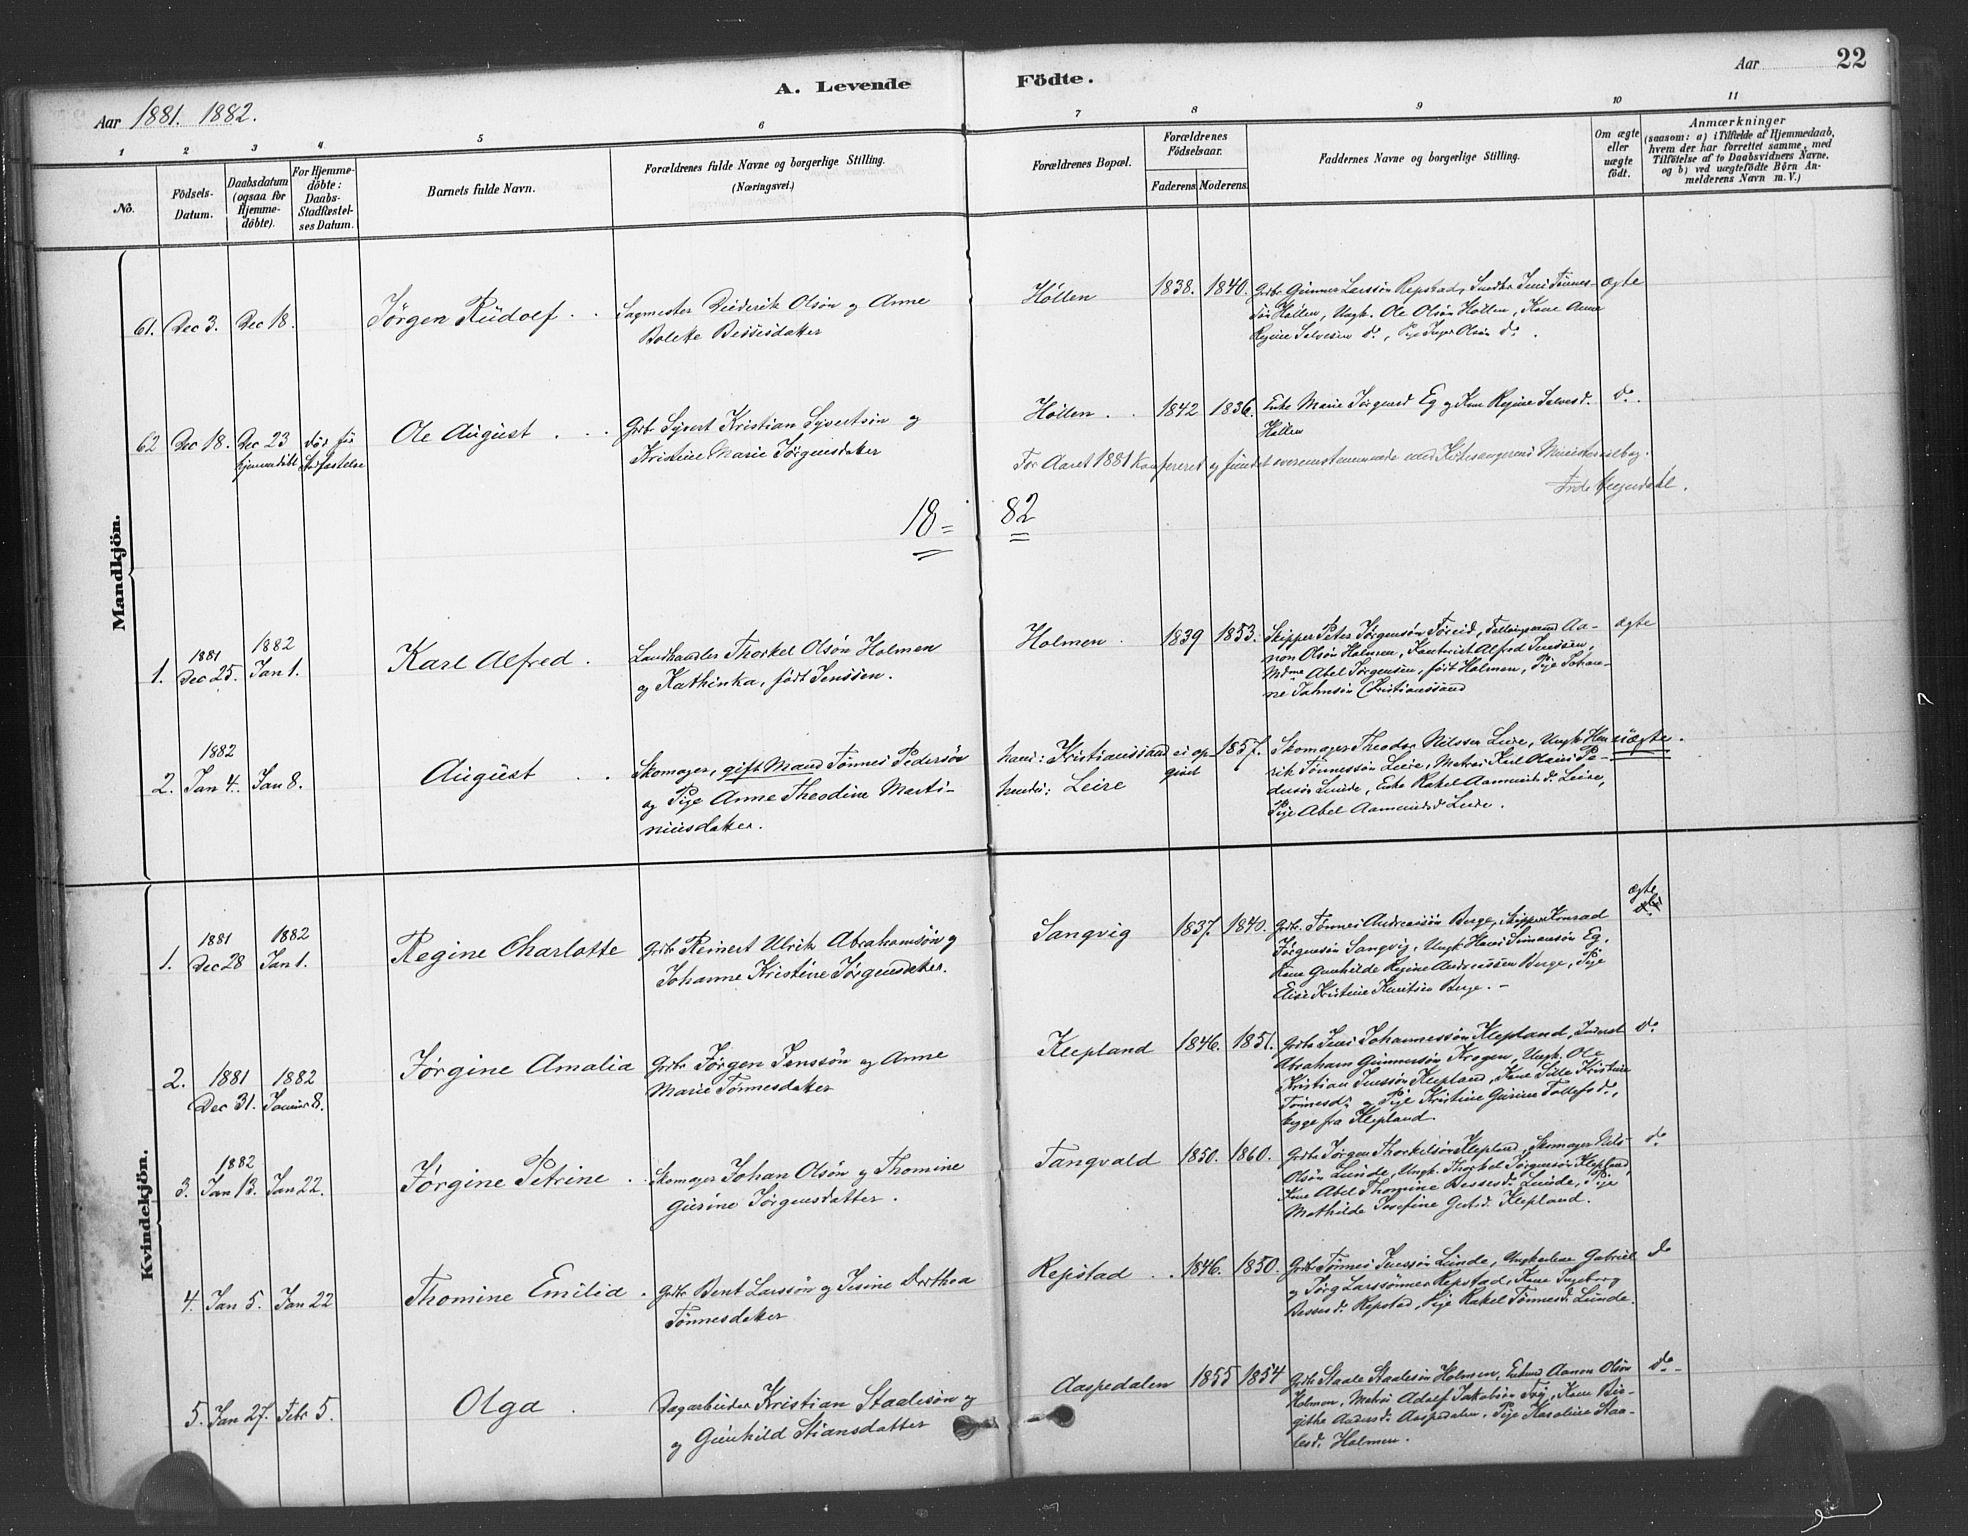 A. Levende Födte.
Aar 1881. 1882.
Aar 22
1 2 3 4 5 6 7 8 9 10 11
No.
Födsels-Datum.
Daabsdatum (ogsaa for Hjemmedöbte).
For Hjemmedöbte: Daabs-Stadfæstelses Datum.
Barnets fulde Navn.
Forældrenes fulde Navne og borgerlige Stilling. (Næringsvei.)
Forældrenes Bopæl.
Forældrenes Födselsaar.
Faderens. Moderens.
Faddernes Navne og borgerlige Stilling.
Om ægte eller uægte födt.
Anmærkninger
(saasom: a) i Tilfælde af Hjemmedaab, hvem der har forrettet samme, med Tilföielse af to Daabsvidners Navne, og b) ved uægtefödte Börn Anmelderens Navn m. V.)
Mandkjön.
61. Dec 3. Dec 18. Jørgen Rudolf . . Sagmester Diderik Olsøn og Anne
Bolette Bessesdatter
Høllen 1838. 1840. Grbr Gunner Larssøn Repstad, Snedker Jens Tønnes-
søn Høllen, Ungk. Ole Olsøn Høllen, Kone Anne
Regine Salvesen do, Pige Inger Olsøn do.
ægte
62 Dec 18. Dec 23 hjemmedøbt død før Stadfæstelse
Ole August . . . Grbr Syvert Kristian Syvertsøn og
Kristine Marie Jørgensdatter
Høllen . . 1842 1836. Enke Marie Jørgensd Eg og Kone Regine Salvesd.
Høllen
do.
For Aaret 1881 konfereret og fundet overensstemmende med Kirkesangerens Ministerialbog.
18= 82
1. 1881 Dec 25. 1882 Jan 1. Karl Alfred . Landhandler Thorkel Olsøn Holmen
og Kathinka, født Jenssen.
Holmen . 1839 1853. Skipper Peter Jørgensøn Føreid, Aa-
non Olsøn Holmen, Kontorist Alfred Jenssen,
Mdme Abel Jørgensen, født Holmen, Pige Johan-
ne Jahnsøn Christianssand
ægte
2. 1882 Jan 4. Jan 8. August . . Skomager, gift Mand Tønnes Pedersøn
og Pige Anne Theodine Marti-
niusdatter.
hans: Kristianssand
hendes: Leire
ei op-
givet
1857. Skomager Theodor Nilssen Leire, Ungk. Hen-
rik Tønnessøn Leire, Matros Karl Olaus Pe-
dersøn Lunde, Enke Rakel Aanensd. Leire,
Pige Abel Aamundsd Leire.
uægte.
Kvindekjön.
1. 1881 Dec 28 1882 Jan 1. Regine Charlotte Grbr Reinert Ulrik Abrahamsøn og
Johanne Kristine Jørgensdatter.
Sangvig 1837. 1840. Grbr. Tønnes Andreassøn Berge, Skipper Konrad
Jørgensøn Sangvig, Ungk. Hans Simonsøn Eg,
Kone Gunhilde Regine Andreassen Berge, Pige
Elise Kristine Knutsen Berge. –
ægte
2. 1881 Dec 31. 1882 Januar 8. Jørgine Amalia Grbr Jørgen Jenssøn og Anne
Marie Tønnesdatter
Klepland 1846. 1851. Grbr Jens Johannessøn Klepland, Inderst
Abraham Gunnersøn Krogen, Ungk. Ole
Kristian Jenssøn Klepland, Kone Sille Kristine
Tønnesd. og Pige Kristine Gurine Tollefsd.,
begge fra Klepland.
do
3. 1882 Jan 13. Jan 22. Jørgine Petrine . Skomager Johan Olsøn og Thomine
Gurine Jørgensdatter .
Tangvald 1850. 1860. Grbr. Jørgen Thorkelsøn Klepland, Skomager Nils
Olsøn Lunde, Ungk. Thorkel Jørgensøn Klepland,
Kone Abel Thomine Bessesd. Lunde, Pige
Mathilde Josefine Gertsd. Klepland.
do
4. Jan 5. Jan 22 Thomine Emilia . Grbr Bent Larssøn og Jesine Dorthea
Tønnesdatter
Repstad . . 1846. 1850. Grbr. Tønnes Jenssøn Lunde, Ungkarlene Gabriel
og Jørg Larssønner Repstad, Kone Ingeborg
Bessesd. Repstad, Pige Rakel Tønnesd. Lunde.
do
5. Jan 27. Febr 5. Olga . Dagarbeider Kristian Staalesøn og
og Gunhild Stiansdatter
Aaspedalen 1855 1854 Grbr. Staale Staalesøn Holmen, Enkem. Aanon Olsøn
Holmen, Matros Adolf Jakobsøn , Kone Bir-
githe Andersd. Aaspedalen, Pige Karoline Staa-
lesd. Holmen.
do